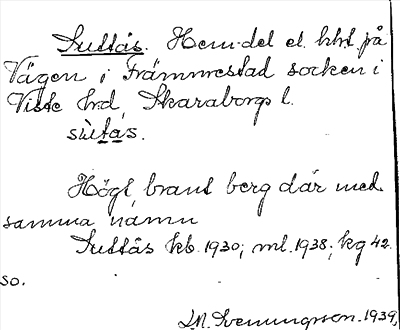 Suttås. Hem.del el. lht på
Vägen i Främmestad socken i
Viste hd, Skaraborgs l.
sùtás.
Högt, brant berg där med
samma namn
Suttås kb. 1930; ml. 1938; kg 42.
so.
M. Svenungsson. 1939,